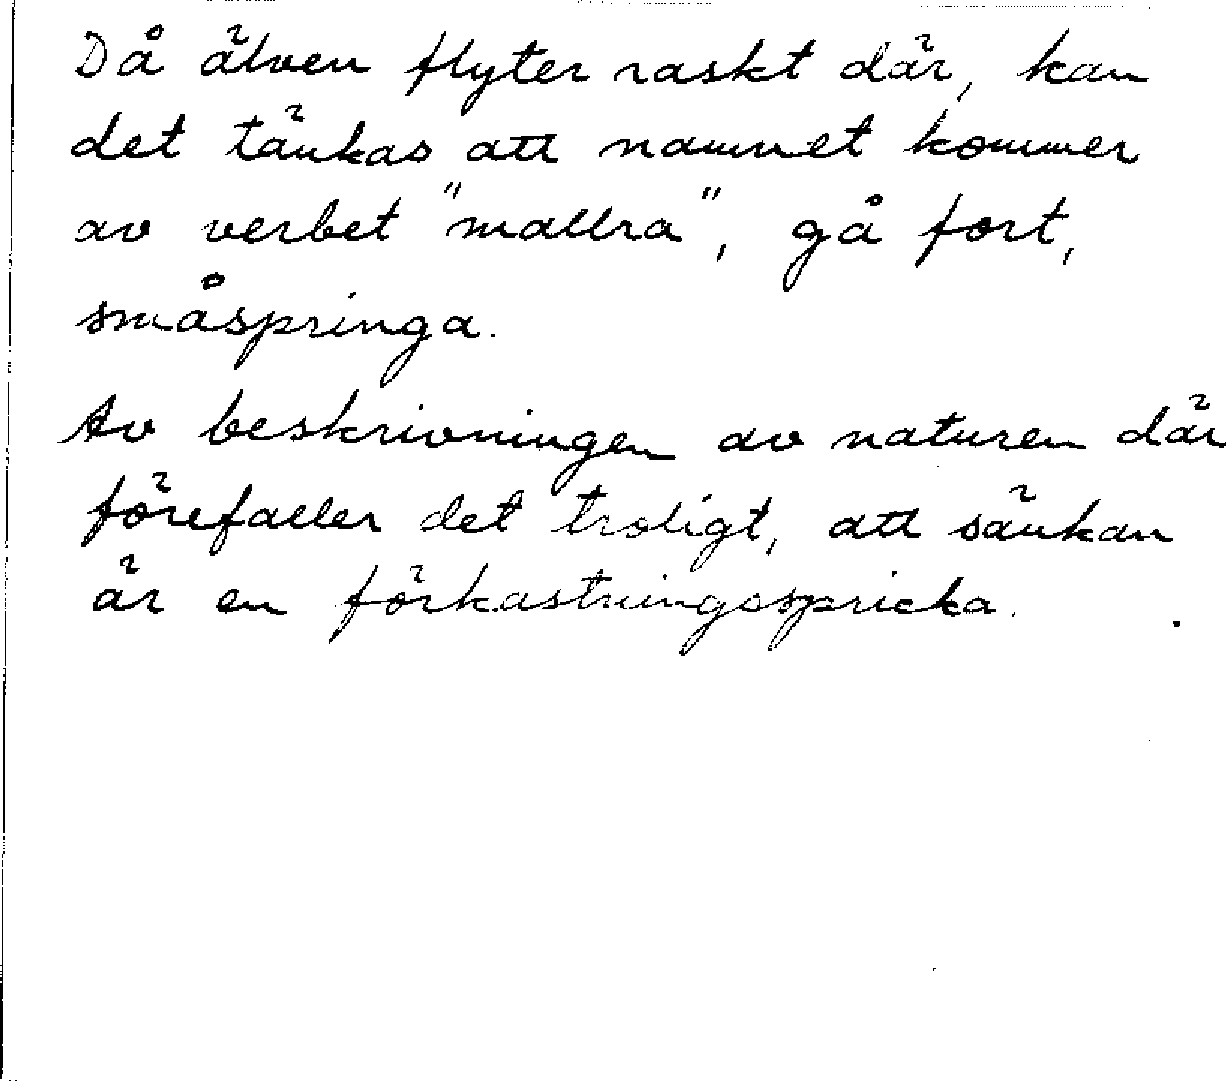 Då älven flyter raskt där, kan
det tänkas att namnet kommer
av verbet "mallra", gå fort,
småspringa.
Av beskrivningen av naturen där
förefaller det troligt, att sänkan
är en förkastningsspricka.